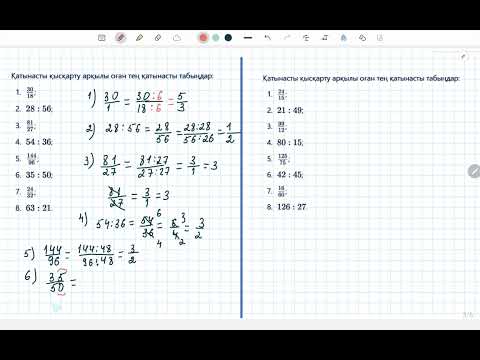 Қатынасты қысқарту арқылы оған тең қатынасты табыңдар:
1. 30/18;
2. 28 : 56;
3. 81/27;
4. 54 : 36;
5. 144/96;
6. 35 : 50;
7. 24/32;
8. 63 : 21.
1) 30/1 = 30:6/18:6 = 5/3
2) 28:56 = 28/56 = 28:28/56:28 = 1/2
3) 81/27 = 81:27/27:27 = 3/1 = 3
81/27 = 3/1 = 3
4) 54:36 = 54/36 = 6/4 = 3/2
5) 144/96 = 144:48/96:48 = 3/2
6) 35/50 =
Қатынасты қысқарту арқылы оған тең қатынасты табыңдар:
2. 21 : 49;
4. 80 : 15;
5. 125/75;
6. 42 : 45;
8. 126 : 27